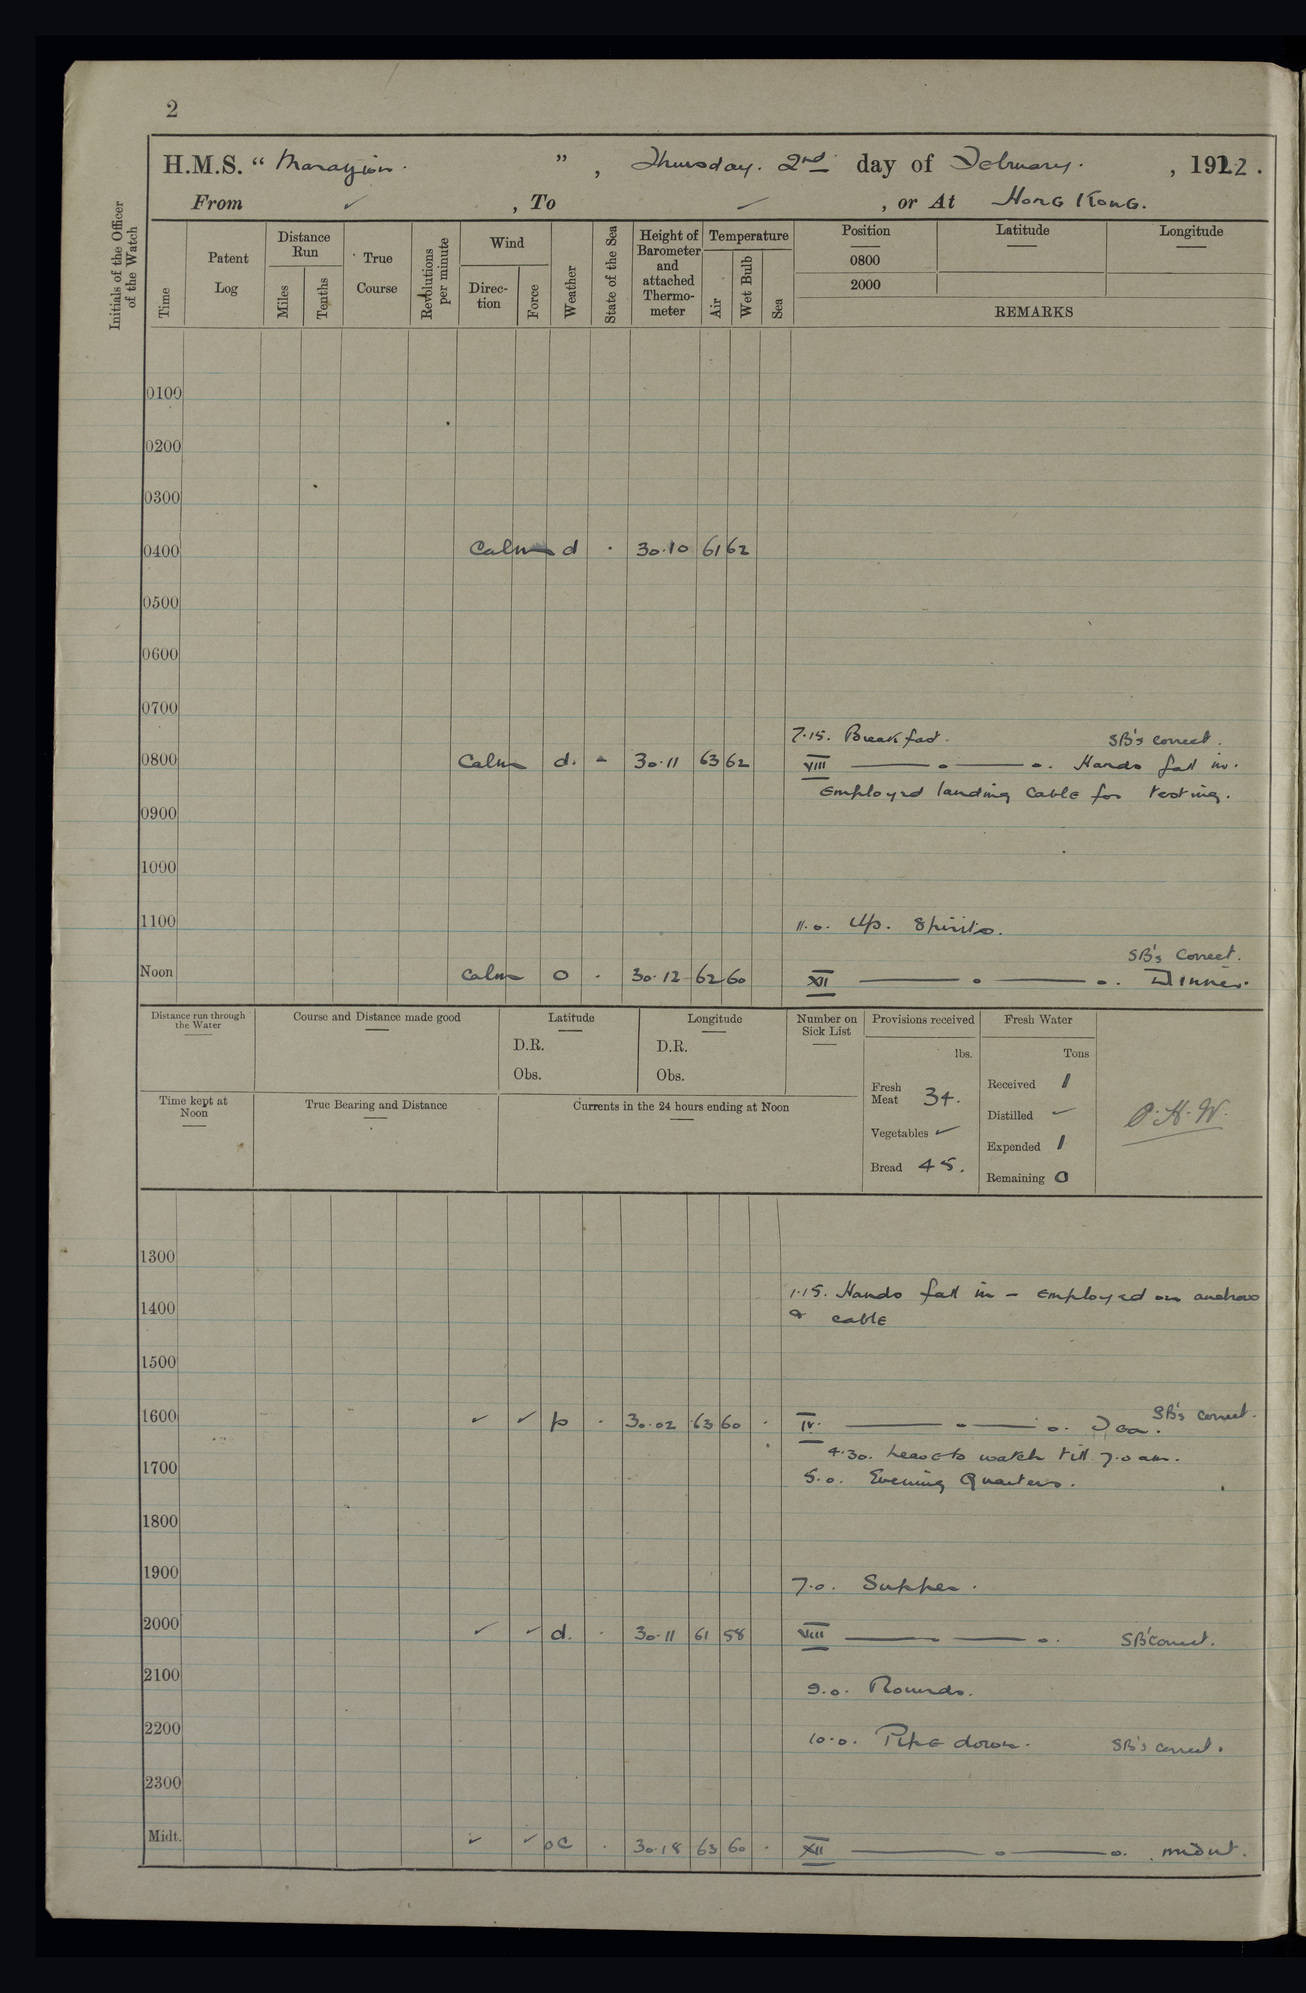 2
H.M.S. “ Marazion. ” , Thursday. 2nd day of February. , 1922 .
From ✓ , To ✓ , or At Hong Kong.
Initials of the Officer of the Watch
Time
Patent Log
Distance Run
Miles
Tenths
True Course
Revolutions per minute
Wind
Direc- tion
Force
Weather
State of the Sea
Height of Barometer and attached Thermo- meter
Temperature
Air
Wet Bulb
Sea
Position
Latitude
Longitude
0800
2000
REMARKS
0100
0200
0300
0400 Calm d . 30.10 61 62
0500
0600
0700
7.15. Breakfast. SB's correct.
0800 Calm d. - 30.11 63 62 VIII ——— o ——— o. Hands fall in.
Employed landing cable for testing.
0900
1000
1100 11.0. Up. Spirits.
SB's Correct.
Noon Calm o . 30.12 62 60 XII ——— o ——— o. Dinner.
Distance run through the Water
Course and Distance made good
Latitude
D.R.
Obs.
Longitude
D.R.
Obs.
Number on Sick List
Provisions received
lbs.
Fresh Meat 34.
Vegetables ✓
Bread 45.
Fresh Water
Tons
Received 1
Distilled ✓
Expended 1
Remaining 0
Time kept at Noon
True Bearing and Distance
Currents in the 24 hours ending at Noon
1300
1.15. Hands fall in - Employed on anchors
1400 & cable
1500
1600 ✓ ✓ p . 30.02 63 60 . IV. ——— o ——— o. Tea. SB's correct.
4.30. Leave to watch till 7.0 am.
1700 5.0. Evening Quarters.
1800
1900 7.0. Supper.
2000 ✓ ✓ d. . 30.11 61 58 VIII ——— ——— o. SB's correct.
2100 9.0. Rounds.
2200 10.0. Pipe down. SB's correct.
2300
Midt. ✓ ✓ oc . 30.18 63 60 . XII ——— o ——— o. midnt.